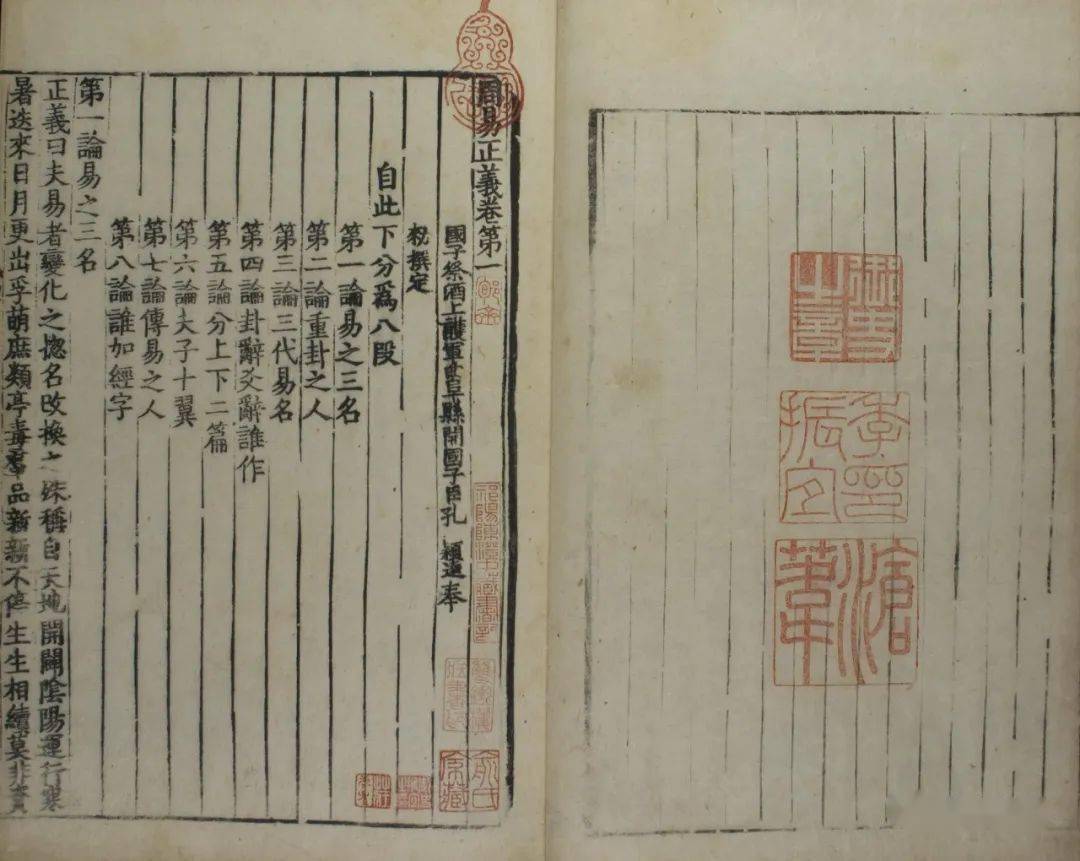 周易正義卷第一
國子祭酒上護軍曲阜縣開國子臣孔穎達奉
敕撰定
自此下分爲八段
第一論易之三名
第二論重卦之人
第三論三代易名
第四論卦辭爻辭誰作
第五論分上下二篇
第六論夫子十翼
第七論傳易之人
第八論誰加經字
第一論易之三名
正義曰夫易者變化之揔名改換之殊稱自天地開闢陰陽運行寒
暑迭來日月更出孚萌庶類亭毒羣品新新不停生生相續莫非資
御史之章
季振宜印
滄葦
俞氏家藏